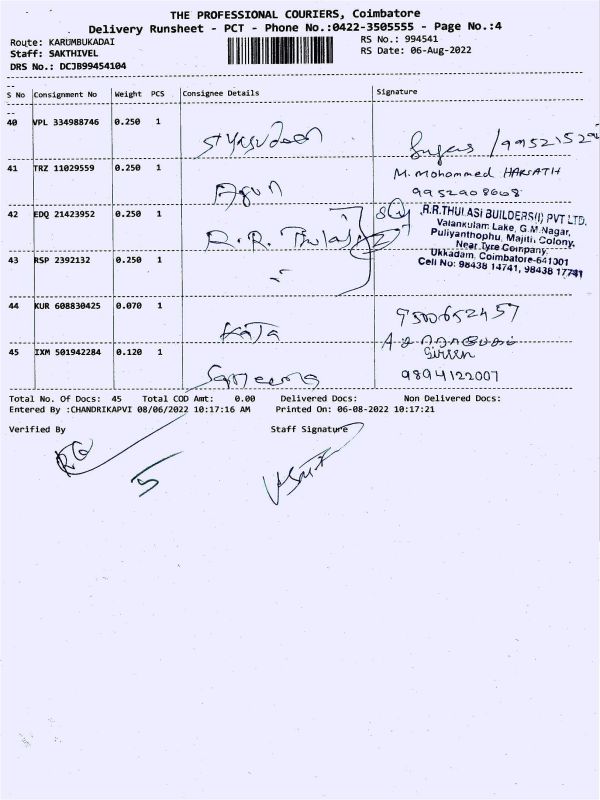 THE PROFESSIONAL COURIERS, Coimbatore
Delivery Runsheet - PCT - Phone No.:0422-3505555 - Page No.:4
Route: KARUMBUKADAI RS No.: 994541
Staff: SAKTHIVEL RS Date: 06-Aug-2022
DRS No.: DCJB99454104
S No Consignment No Weight PCS Consignee Details Signature
40 VPL 334988746 0.250 1
41 TRZ 11029559 0.250 1 M. Mohammed HARSATH
9952908608
42 EDQ 21423952 0.250 1 R.R. Thulasi
R.R.THULASI BUILDERS(I) PVT LTD.
Valankulam Lake, G.M.Nagar,
Puliyanthophu, Majiti, Colony,
Near Tyre Company,
Ukkadam, Coimbatore-641001
Cell No: 98438 14741, 98438 17741
43 RSP 2392132 0.250 1
44 KUR 608830425 0.070 1 9500652457
KaJa
45 IXM 501942284 0.120 1
9894122007
Total No. Of Docs: 45 Total COD Amt: 0.00 Delivered Docs: Non Delivered Docs:
Entered By :CHANDRIKAPVI 08/06/2022 10:17:16 AM Printed On: 06-08-2022 10:17:21
Verified By Staff Signature